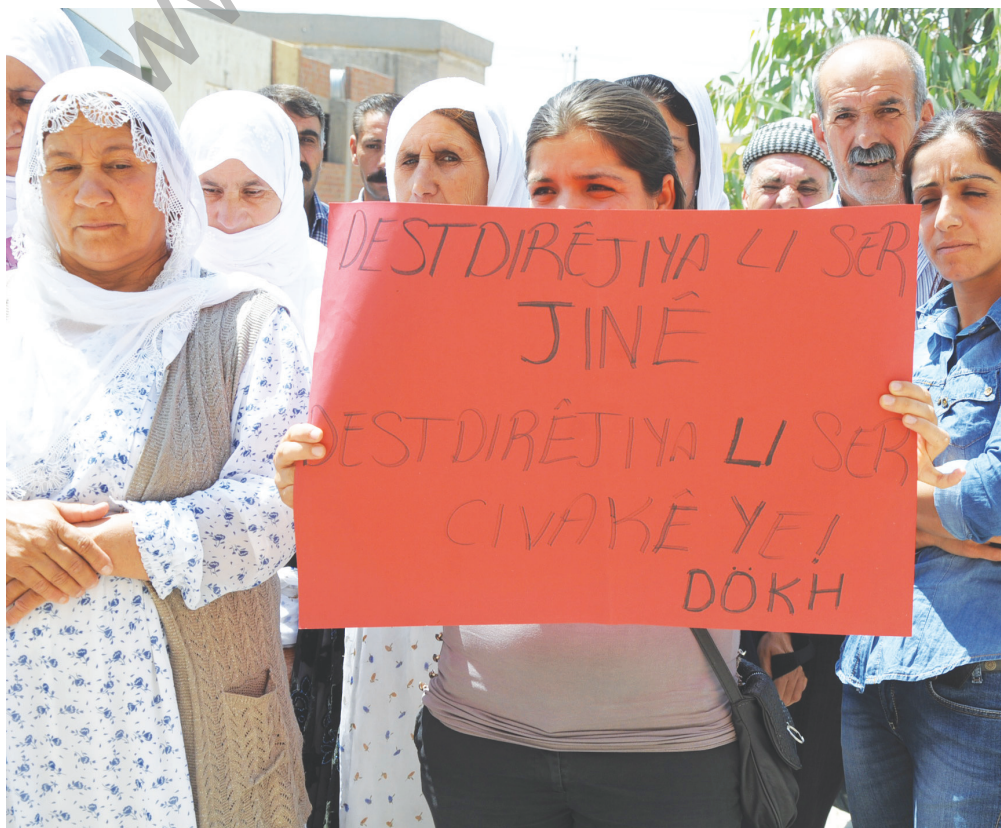 DESTDIRÊJIYA LI SER
JINÊ
DESTDIRÊJIYA LI SER
CIVAKÊ YE!
DÖKH